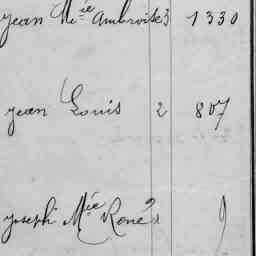 Jean Mie Ambroise 3 1330
Jean Louis 2 807
Joseph Mie René 2 9